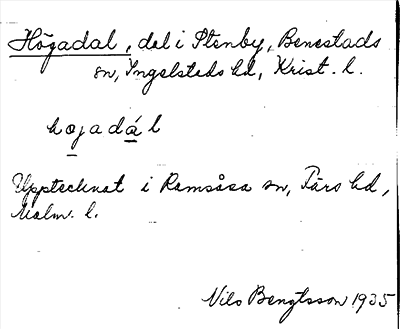 Högadal, del i Stenby, Benestads
sn, Ingelstads hd, Krist. l.
hojadál
Upptecknat i Ramsåsa sn, Färs hd,
Malm. l.
Nils Bengtsson 1935